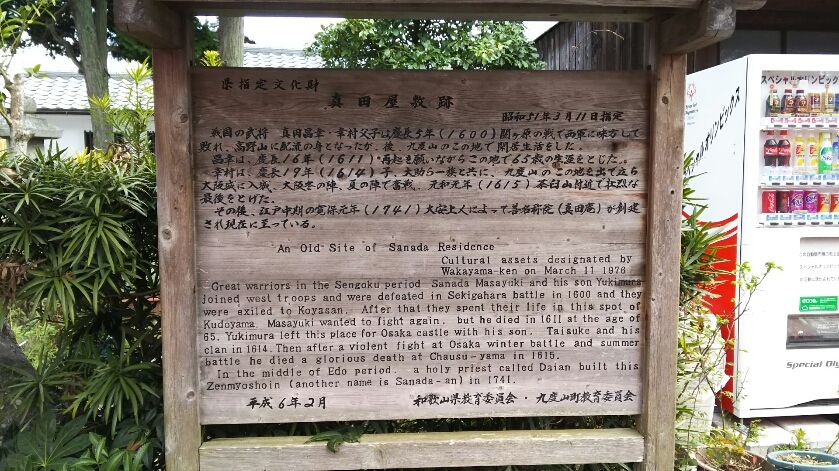 県指定文化財
真田屋敷跡
昭和51年3月11日指定
戦国の武将 真田昌幸・幸村父子は慶長5年(1600)関ヶ原の戦で西軍に味方して
敗れ、高野山に配流の身となったが、後、九度山のこの地で閑居生活をした。
昌幸は、慶長16年(1611)・再起を願いながらこの地で65歳の生涯をとじた。
幸村は、慶長19年(1614)子、大助ら一族と共に、九度山のこの地を出て立ち
大阪城に入城、大阪冬の陣、夏の陣で奮戦、元和元年(1615)茶臼山附近で壮烈な
最後をとげた。
その後、江戸中期の寛保元年(1741)大安上人によって善名称院(真田庵)が創建
され現在に至っている。
An Old Site of Sanada Residence
Cultural assets designated by
Wakayama-ken on March 11 1976
Great warriors in the Sengoku period Sanada Masayuki and his son Yukimura
joined west troops and were defeated in Sekigahara battle in 1600 and they
were exiled to Koyasan. After that they spent their life in this spot of
Kudoyama. Masayuki wanted to fight again. but he died in 1611 at the age of
65. Yukimura left this place for Osaka castle with his son. Taisuke and his
clan in 1614. Then after a violent fight at Osaka winter battle and summer
battle he died a glorious death at Chausu-yama in 1615.
In the middle of Edo period. a holy priest called Daian built this
Zenmyoshoin (another name is Sanada-an) in 1741.
平成6年2月 和歌山県教育委員会・九度山町教育委員会
スペシャルオリンピックス
Special Oly